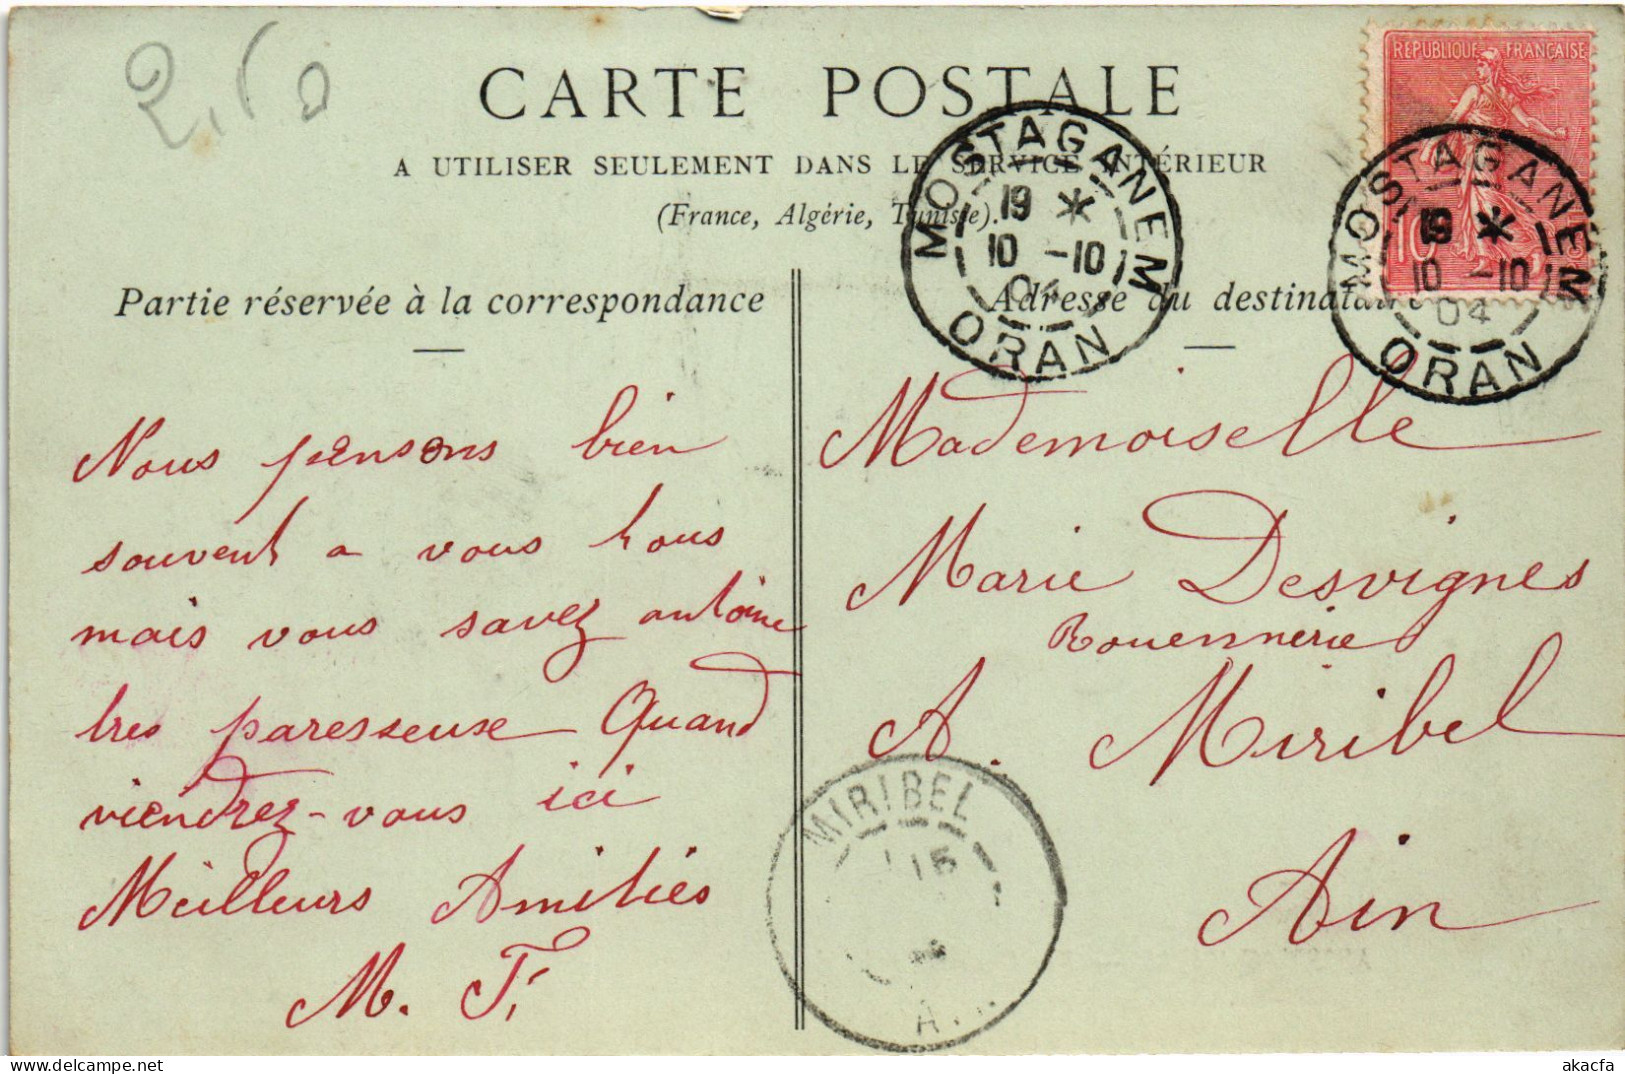 2,50
CARTE POSTALE
A UTILISER SEULEMENT DANS LE SERVICE INTÉRIEUR
(France, Algérie, Tunisie).
REPUBLIQUE FRANÇAISE
10
MOSTAGANEM
19 *
10 -10
04
ORAN
MOSTAGANEM
19 *
10 -10
04
ORAN
Partie réservée à la correspondance
Nous pensons bien
souvent a vous tous
mais vous savez antoine
tres paresseuse Quand
viendrez-vous ici
Meilleurs Amitiés
M. F.
Adresse du destinataire
Mademoiselle
Marie Desvignes
Rouennerie
A. Miribel
Ain
MIRIBEL
15
akacfa
-DELCAMPE.NET-